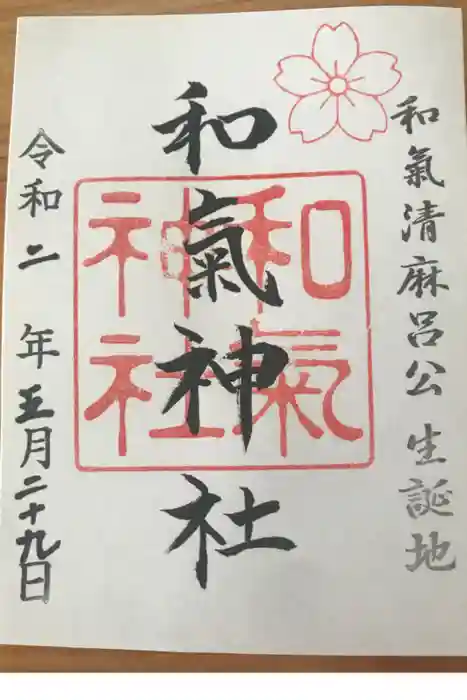 和氣清麻呂公 生誕地
和氣神社
和氣
神社
令和二年五月二十九日